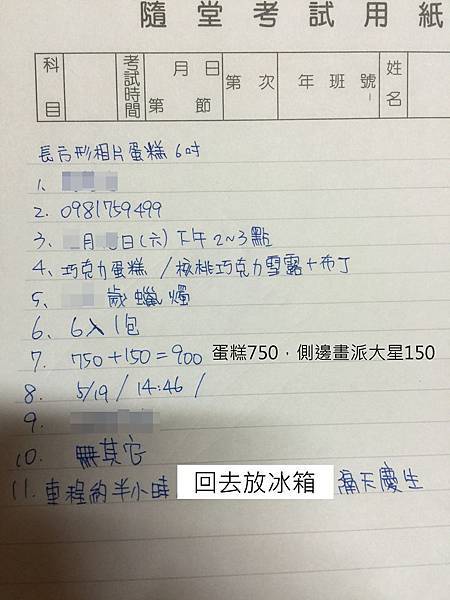 隨堂考試用紙
科目 考試時間 月 日 第 節 第 次 年 班 號 姓名
長方形相片蛋糕 6吋
1.
2. 0981759499
3. 月 日(六)下午2~3點
4. 巧克力蛋糕 / 核桃巧克力雪露+布丁
5. 歲蠟燭
6. 6入1包
7. 750+150=900 蛋糕750,側邊畫派大星150
8. 5/19 / 14:46 /
9.
10. 無其它
11. 車程約半小時 回去放冰箱 隔天慶生